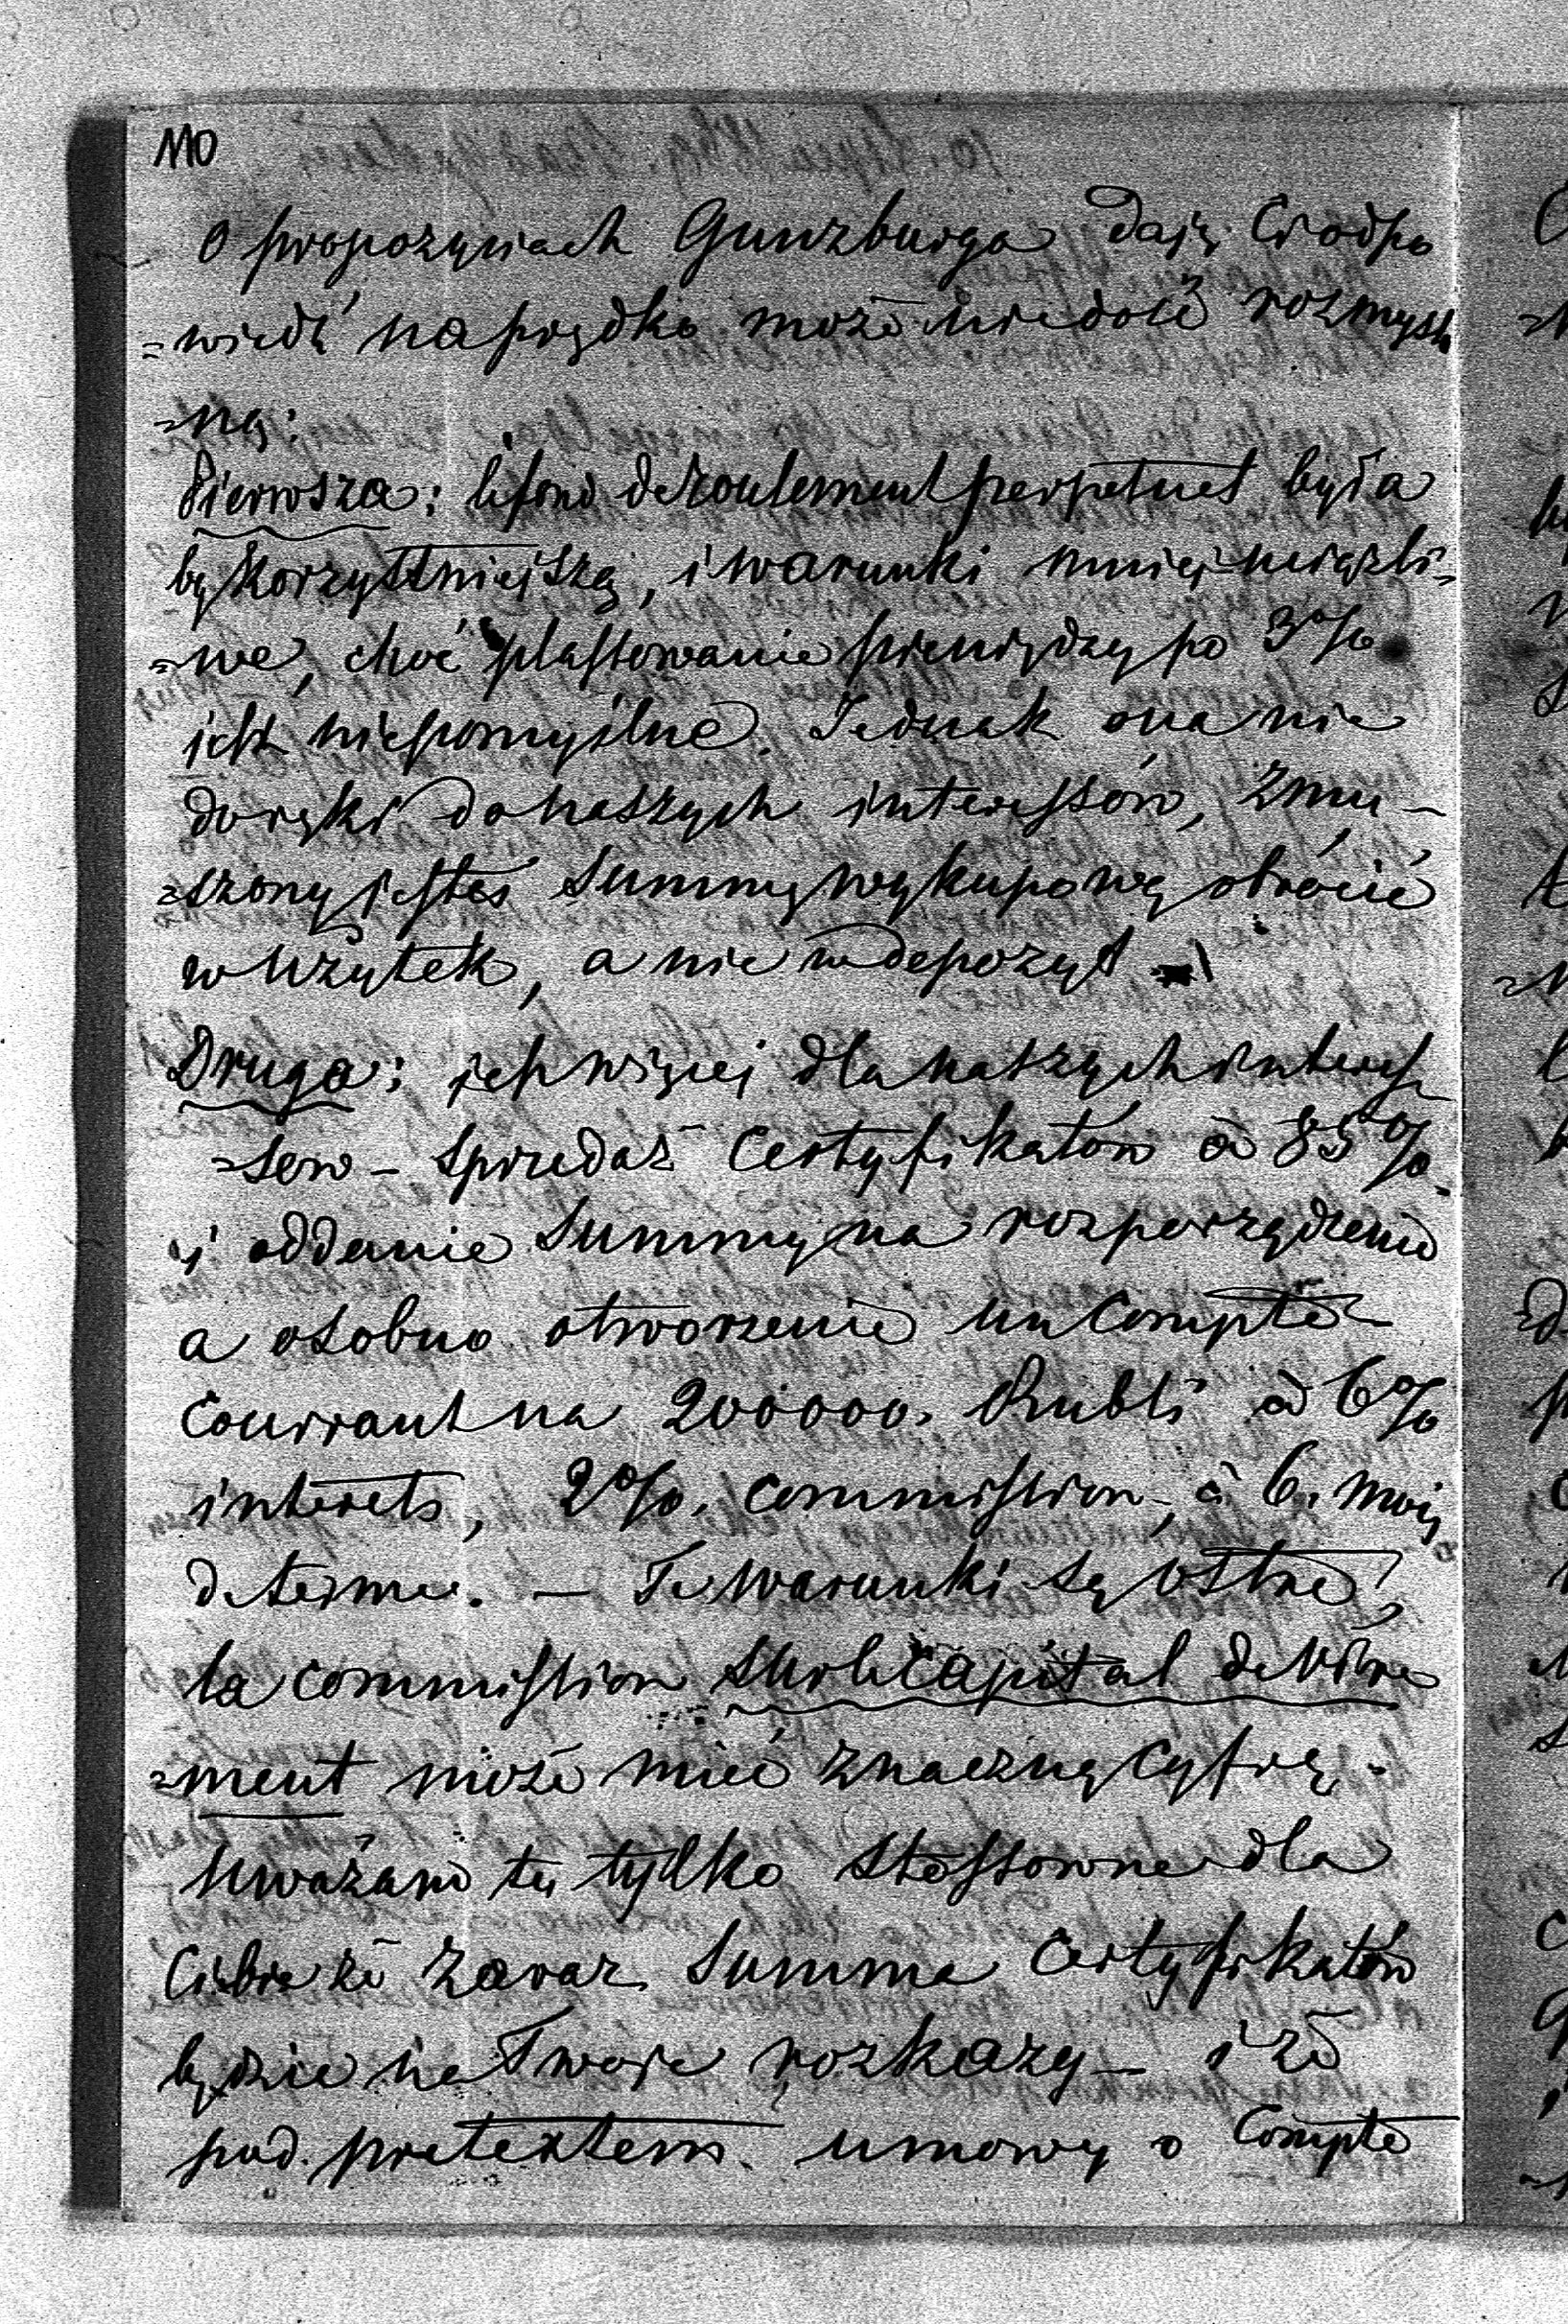 110
O propozyciach Gunzburga daję Ci odpo
=wiedź na prędko może nie dość rozmyśl
=ną:
Pierwsza: le fond de roulement perpetuel była
by korzystniejszą, i warunki mniej uciążli=
=we, choć plassowanie pieniędzy po 3%
jest niepomyślne. Jednak ona nie
do ręki do naszych interessów, zmu-
=szony jesteś Summę wykupową obrócić
w użytek, a nie w depozyt
Druga: jest więcej dla naszych interes
=sow – sprzedaż Certyfikatów à 85%
i oddanie Summy na rozporządzenie
a osobno otworzenie un Compte
Courrant na 200000. Rubli à 6%
interets, 2%. commission, à 6. mois
de terme. — Te warunki są ostre,
la commission sur le capital de vire
=ment może mieć znaczną cyfrę.
Uważam tę tylko stossowne dla
Ciebie że zaraz Summa Certyfikatów
będzie na Twoje rozkazy – i że
pod. pretextem umowy o Compte